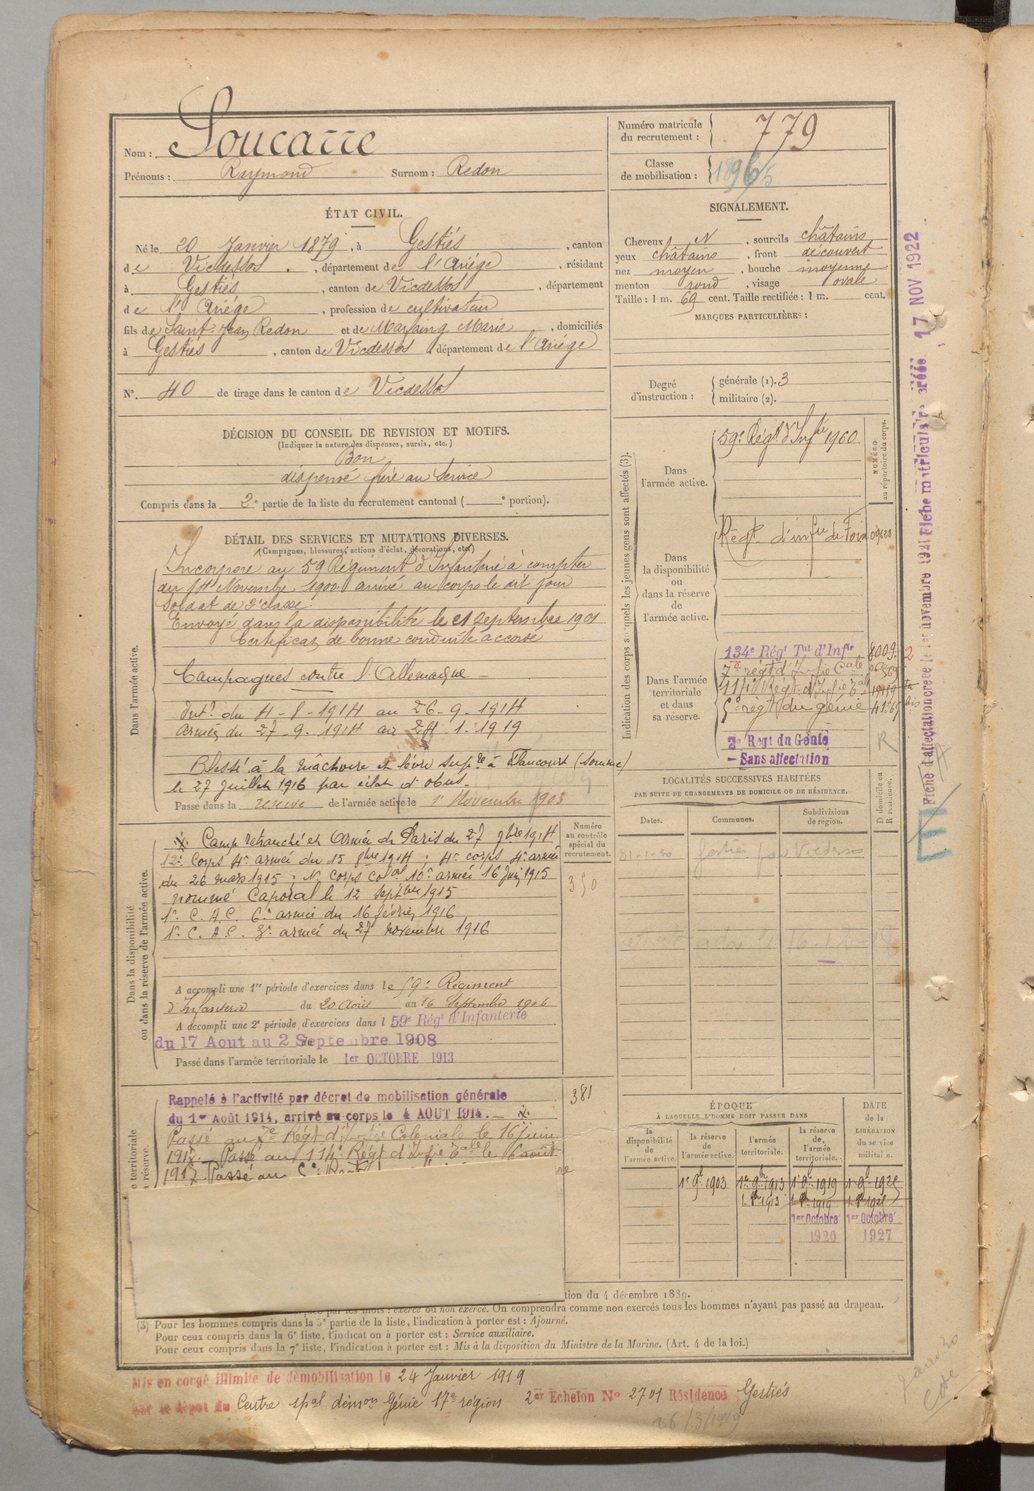 Nom : Loucarre
Prénoms : Raymond Surnom : Redon
Numéro matricule du recrutement : 779
Classe de mobilisation : 1896
ÉTAT CIVIL.
Né le 20 Janvier 1879, à Gestiés, canton
de Vicdessos, département de l'Ariége, résidant
à Gestiés, canton de Vicdessos, département
de l'Ariége, profession de cultivateur
fils de Saint-Jean Redon et de Marie, domiciliés
à Gestiés, canton de Vicdessos département de l'Ariége
N°. 40 de tirage dans le canton de Vicdessos
SIGNALEMENT.
Cheveux N, sourcils châtains
yeux châtains, front découvert
nez moyen, bouche moyenne
menton rond, visage ovale
Taille : 1 m. 69 cent. Taille rectifiée : 1 m. cent.
MARQUES PARTICULIÈRES :
Degré d'instruction : générale (1). 3
militaire (2).
DÉCISION DU CONSEIL DE REVISION ET MOTIFS.
(Indiquer la nature des dispenses, sursis, etc.)
Bon
dispensé frère au service
Compris dans la 2e partie de la liste du recrutement cantonal ( e portion).
DÉTAIL DES SERVICES ET MUTATIONS DIVERSES.
(Campagnes, blessures, actions d'éclat, décorations, etc.)
Dans l'armée active.
Incorporé au 59 Régiment d'Infanterie à compter
du 14 Novembre 1900 arrivé au corps le dit jour
soldat de 2e classe.
Envoyé dans la disponibilité le 21 septembre 1901
Certificat de bonne conduite accordé
Campagnes contre l'Allemagne
Intr du 4-8-1914 au 26-9-1914
Armées du 27-9-1914 au 24-1-1919
Blessé à la mâchoire et lèvre supre à Flaucourt (Somme)
le 27 Juillet 1916 par éclat d'obus.
Passé dans la réserve de l'armée active le 1er Novembre 1903
Dans la disponibilité ou dans la réserve de l'armée active.
Camp retranché et Armée de Paris du 27 9bre 1914
12e Corps 4e armée du 15 8bre 1914 ; 4e corps 4e armée
du 26 mars 1915 ; 1er Corps Colal 10e armée 16 juin 1915
nommé Caporal le 12 Septbre 1915
1er C. A. C. 6e armée du 16 février 1916
1er C. A. C. 3e armée du 27 novembre 1916
A accompli une 1re période d'exercices dans le 59e Régiment
d'Infanterie du 20 Août au 16 Septembre 1906
A accompli une 2e période d'exercices dans l 59e Rég d'Infanterie
du 17 Aout au 2 Septembre 1908
Passé dans l'armée territoriale le 1er OCTOBRE 1913
Numéro au contrôle spécial du recrutement.
350
381
Rappelé à l'activité par décret de mobilisation générale
du 1er Août 1914, arrivé au corps le 4 AOUT 1914.
Passé au 7e Régt d'Infie Coloniale le 16 juin
1915. Passé au 114e Régt d'Infie Tale le 6 août
1917 Passé au
territoriale
réserve.
Indication des corps auxquels les jeunes gens sont affectés (3).
Dans l'armée active.
59e Régt d'Infie 1900
NUMÉRO au répertoire du corps.
Dans la disponibilité ou dans la réserve de l'armée active.
Régt d'infie de Foix
Dans l'armée territoriale et dans sa réserve.
134e Régt Tal d'Infie 8009
7e régt d'Infie Cale
114e Régt d'Infie Tale
5e régt du génie
2e Regt du Génie
Sans affectation
R
LOCALITÉS SUCCESSIVES HABITÉES
PAR SUITE DE CHANGEMENTS DE DOMICILE OU DE RÉSIDENCE.
Dates. Communes. Subdivisions de région. D domicile ou R résidence.
Gestiés par Vicdessos
ÉPOQUE
À LAQUELLE L'HOMME DOIT PASSER DANS
la disponibilité de l'armée active. la réserve de l'armée active. l'armée territoriale. la réserve de l'armée territoriale.
DATE de la LIBÉRATION du service militaire.
1er 9bre 1903 1er 9bre 1913 1er 9bre 1919
1er 8bre 1913 1er 8bre 1919
1er Octobre 1920 1er Octobre 1927
tion du 4 décembre 1889.
On comprendra comme non exercés tous les hommes n'ayant pas passé au drapeau.
(3) Pour les hommes compris dans la 5e partie de la liste, l'indication à porter est : Ajourné.
Pour ceux compris dans la 6e liste, l'indication à porter est : Service auxiliaire.
Pour ceux compris dans la 7e liste, l'indication à porter est : Mis à la disposition du Ministre de la Marine. (Art. 4 de la loi.)
Mis en congé illimité de démobilisation le 24 Janvier 1919
par le dépôt du Centre spal démon Génie 17e région 2er Echelon No 2701 Résidence Gestiés
17 NOV 1922